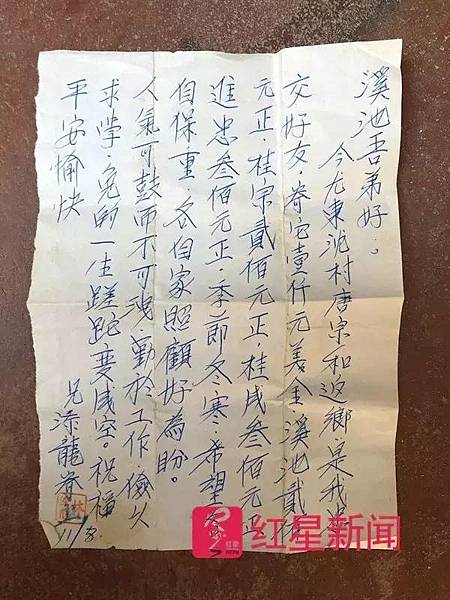 溪池吾弟好：
今尤東泥村唐宗和返鄉.是我
交好友.壹仟元美金溪池貳佰
元正.桂宗貳佰元正.桂成叁佰元正
進忠叁佰元正.季節冬寒.希望
自保重.各自家照顧好為盼.
人氣可鼓而不可洩.勤於工作.儉久
求學.免的一生蹉跎變成空.祝福
平安愉快
兄添龍
11/8.
红星新闻